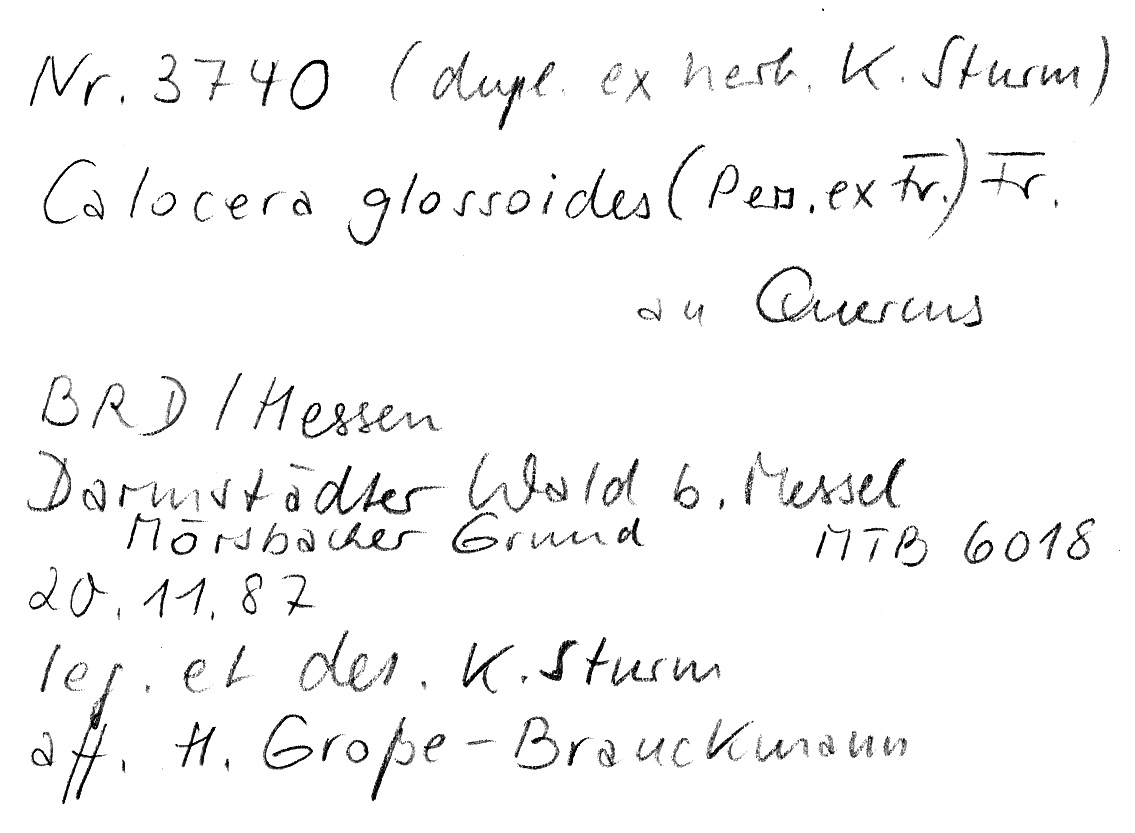 Nr. 3740 (dupl. ex herb. K. Sturm)
Calocera glossoides (Pers. ex Fr.) Fr.
an Quercus
BRD / Hessen
Darmstädter Wald b. Messel
Mörsbacher Grund MTB 6018
20.11.87
leg. et det. K. Sturm
aff. H. Große-Brauckmann